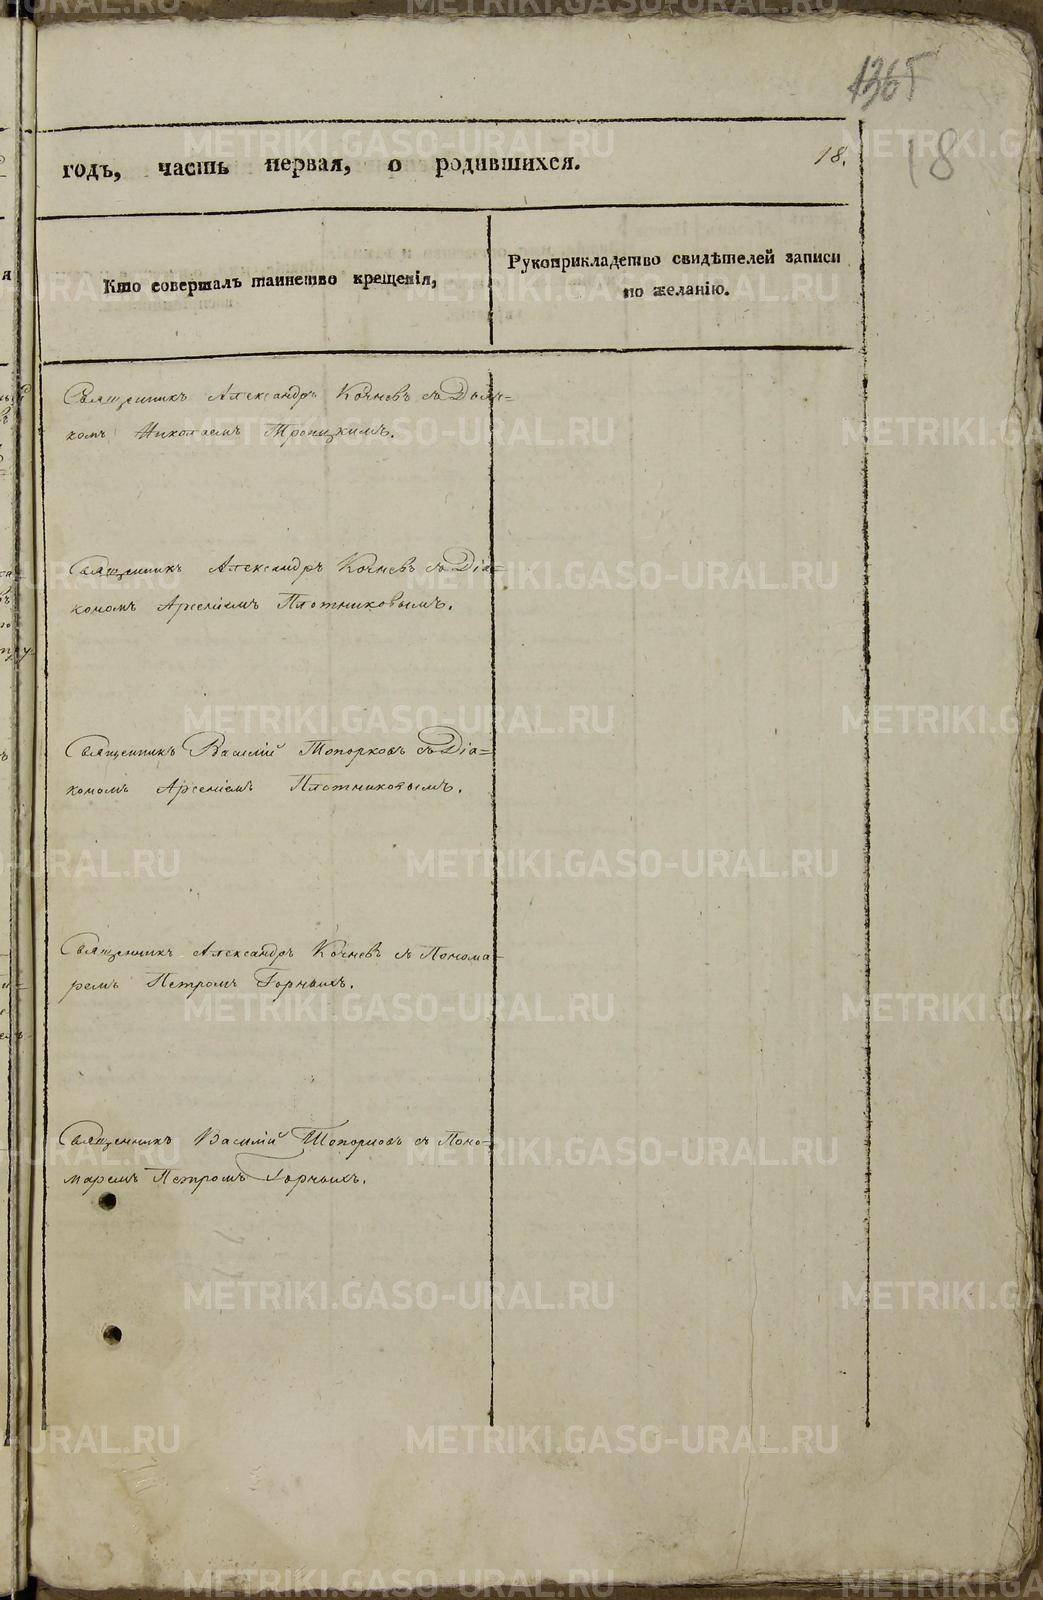 1365
18
18.
годъ, часть первая, о родившихся.
Кто совершалъ таинство крещенія,
Рукоприкладство свидѣтелей записи
по желанію.
Священникъ Александръ Кочневъ съ Дьяч=
комъ Николаемъ Троицкимъ.
Священникъ Александръ Кочневъ съ Діа=
кономъ Арсеніемъ Плотниковымъ.
Священникъ Василій Топорковъ съ Діа=
кономъ Арсеніемъ Плотниковымъ.
Священникъ Александръ Кочневъ съ Понома=
ремъ Петромъ Горныхъ.
Священникъ Василій Топорковъ съ Поно=
маремъ Петромъ Горныхъ.
METRIKI.GASO-URAL.RU